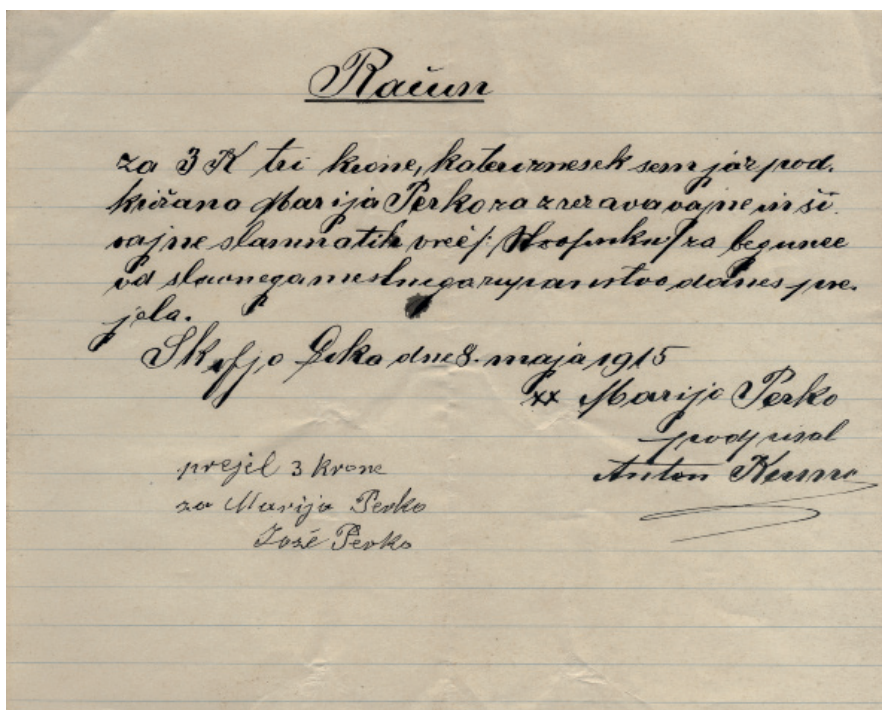 Račun
za 3 K tri krone, kateri znesek sem jaz pod.
križana Marija Perko za zrezavavajne in ši
vajne slamnatih vreč /: :/ za begunce
od slavnega mestnega županstva danes pre.
jela.
Škofja Loka dne 8. maja 1915
xx Marija Perko
podpisal
Anton
prejel 3 krone
za Marija Perko
Jože Perko